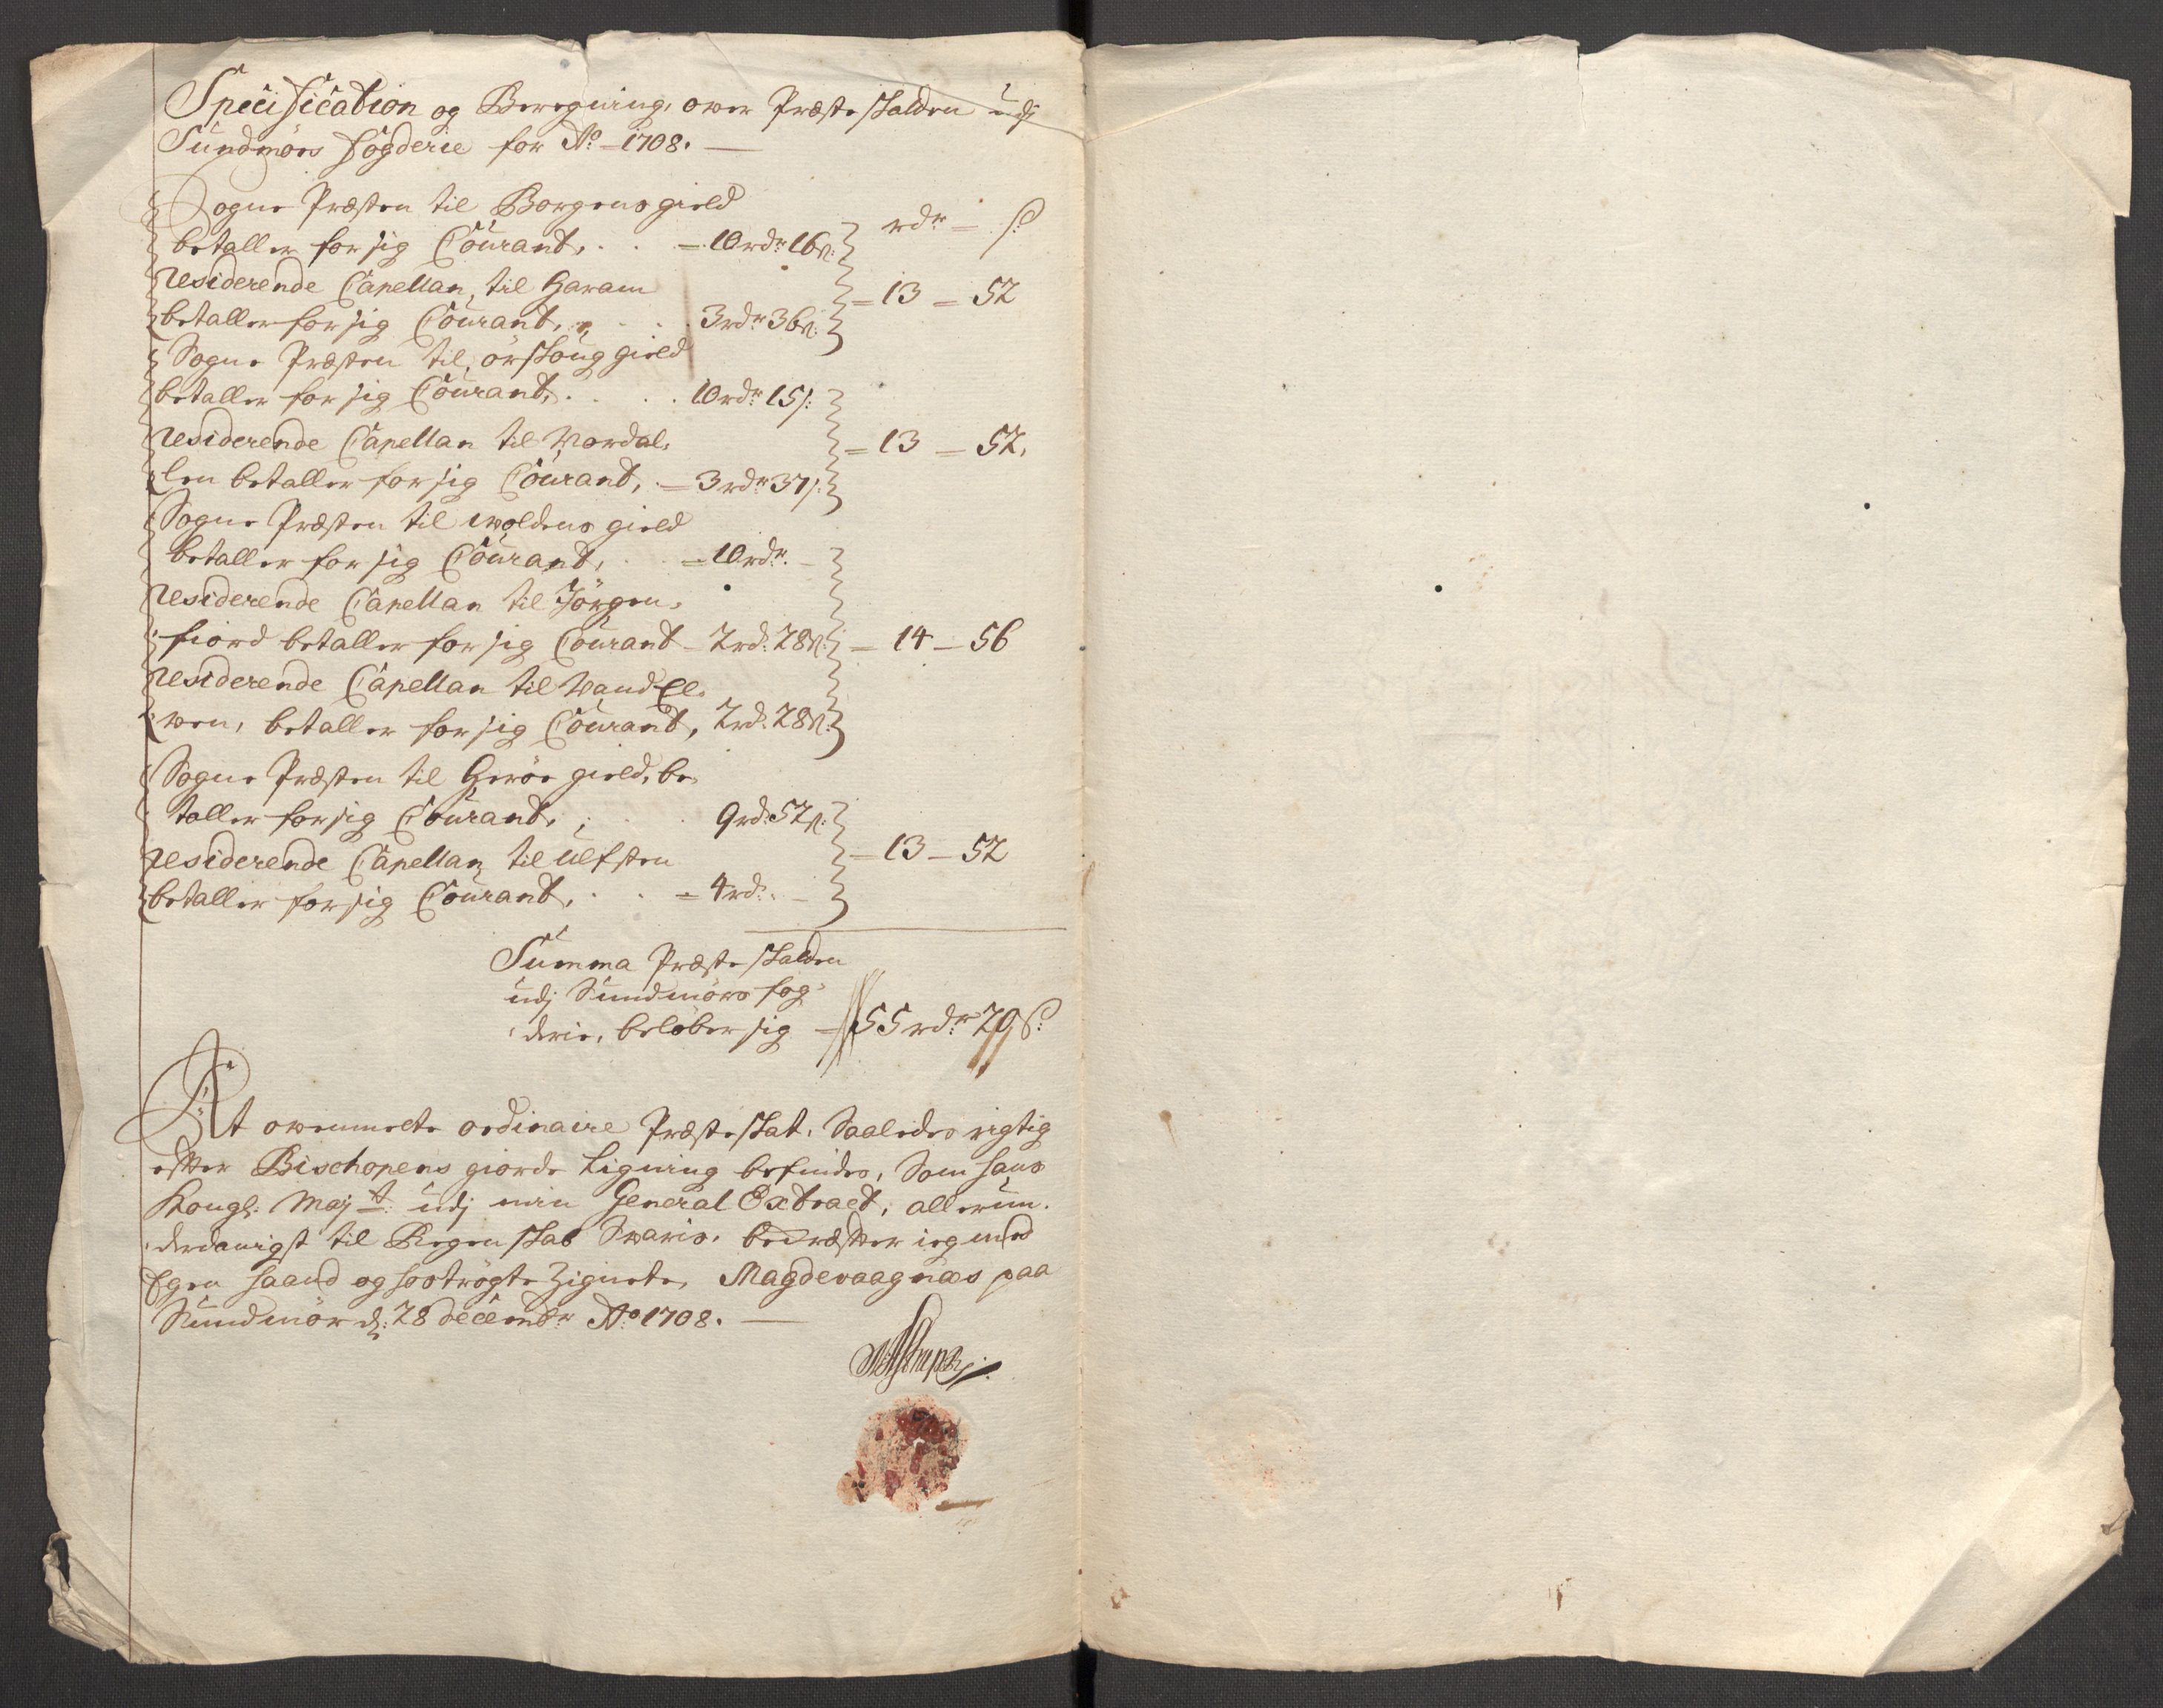 Specification og Beregning, over Præste skatden udj
Sundmörs fogderie for Ao 1708.
Sogne Præsten til Borgens gield
betaller for sig Courant, . . = 10 rdr 16 s:
rdr = s
residerende Capellan, til Haram
betaller for sig Courant, . . 3 rdr 36 s:
= 13 = 52
Sogne Præsten til, örskoug gield
betaller for sig Courant, . . . 10 rdr 15 s:
residerende Capellan til Nordal,
len betaller for sig Courant, = 3 rdr 37 s:
= 13 = 52,
Sogne Præsten til woldens gield
betaller for sig Courant, . . = 10 rdr. –
residerende Capellan til Jörgen,
fiord betaller for sig Courant – 2 rd: 28 s:
= 14 – 56
residerende Capellan til VandEl,
wen, betaller for sig Courant, 2 rd: 28 s:
Sogne Præsten til Heröe gield, be,
taller for sig Courant, . . 9 rd: 52 s:
residerende Capellan til Ulfsten
betaller for sig Courant, . . = 4 rd: –
= 13 – 52
Summa Præste skatden
udj Sundmörs fog,
derie, belöber sig = 55 rdr 20 s:
At owenmelte ordinaire Præste skat, Saaledes rigtig
efter Bischopens giorde Ligning befindes, Som hans
Kongl: Maj:t udj min General Extract, allerun,
derdanigst til Regenskab Svaris, bekræfter ieg med
Egen haand og hoströgte Zignete, Magdevaagnæs paa
Sundmör d: 28 decembr Ao 1708.